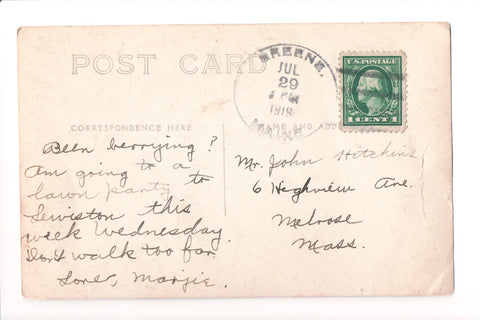 POST CARD
GREENE,
JUL
29
1919
MAINE
U.S.POSTAGE
1 CENT 1
CORRESPONDENCE HERE
NAME AND ADD
Been berrying?
Am going to a
lawn party to
Lewiston this
week Wednesday.
Don't walk too far.
Love, Marjie.
Mr. John Hitchins
6 Highview Ave.
Melrose
Mass.